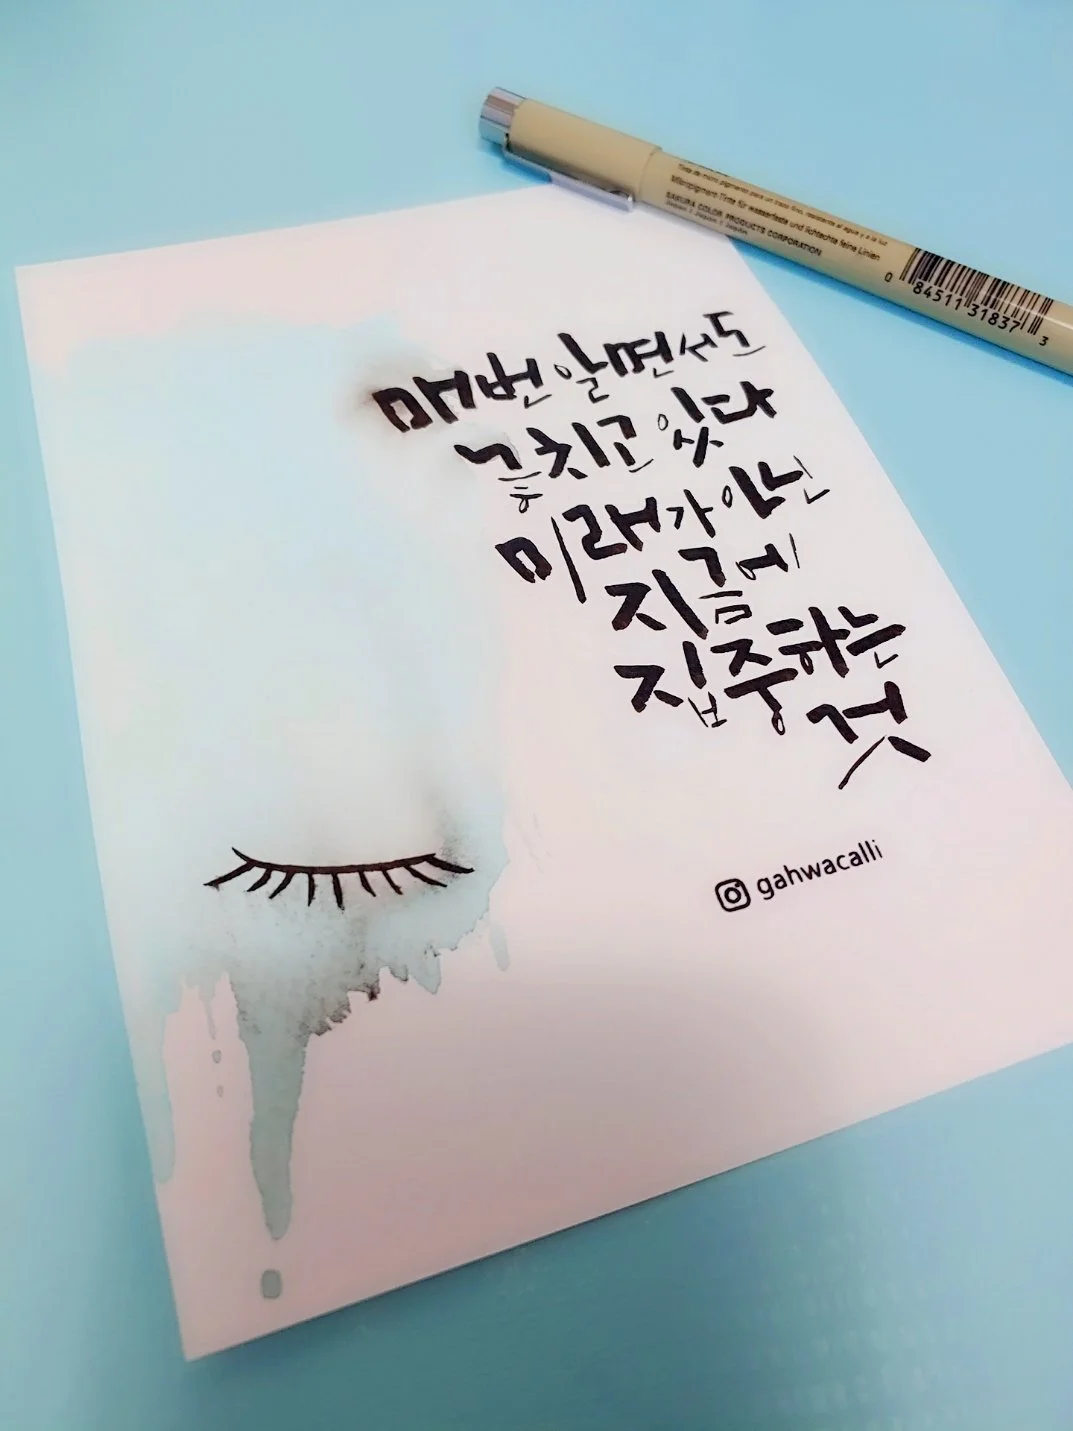 Tinta de micro pigmento para un trazo fino, resistente al agua y a la luz
Mikropigment-Tinte für wasserfeste und lichtechte feine Linien
SAKURA COLOR PRODUCTS CORPORATION
Japan / Japon / Japón
0 84511 31837 3
매번 알면서도
놓치고 있다
미래가 아닌
지금에
집중하는
것
gahwacalli